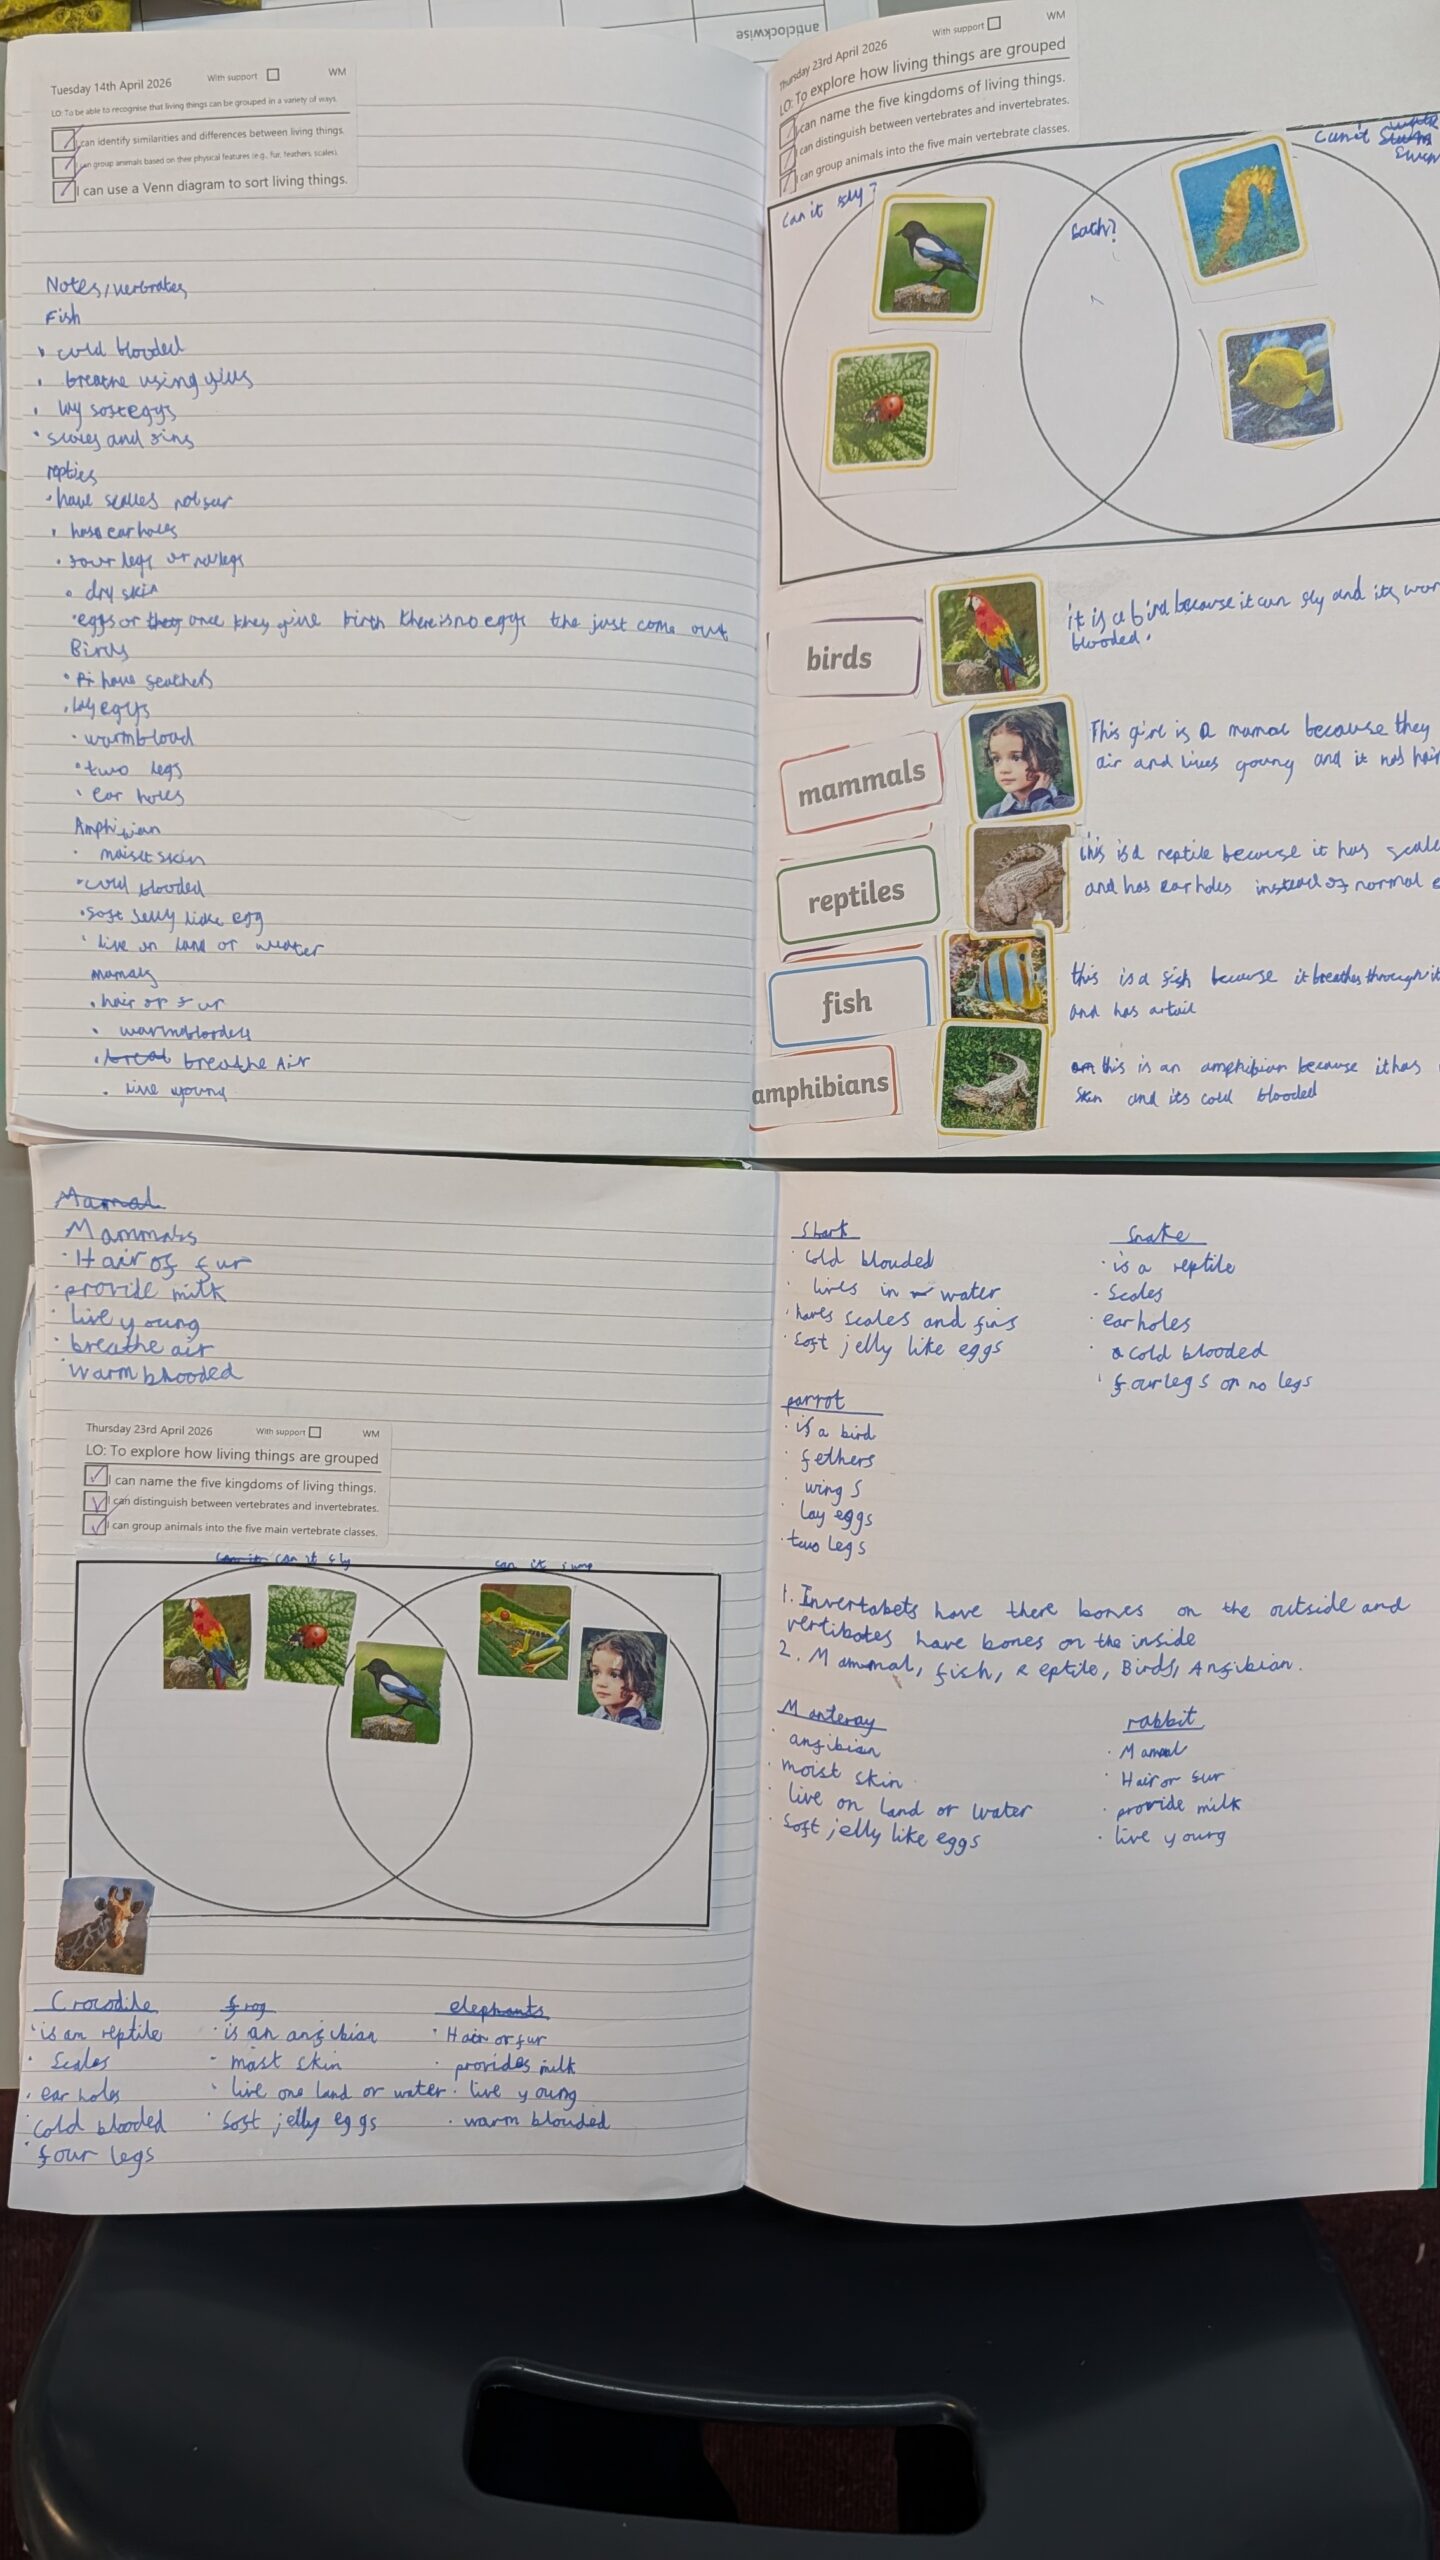 anticlockwise
Tuesday 14th April 2026 With support WM
LO: To be able to recognise that living things can be grouped in a variety of ways.
I can identify similarities and differences between living things.
I can group animals based on their physical features (e.g., fur, feathers, scales).
I can use a Venn diagram to sort living things.
Notes/verbrates
Fish
cold blooded
breathe using
lay soft eggs
and fins
repties
have scalles not fur
ear holes
four legs or no legs
dry skin
eggs or they once they give birth there is no eggs the just come out
Birds
have feathers
lay eggs
warmbload
two legs
ear holes
Amphibian
skin
cold blooded
soft Jelly like egg
live on land or
mamals
hair or fur
breathe Air
Live young
Thursday 23rd April 2026 With support WM
LO: To explore how living things are grouped
I can name the five kingdoms of living things.
I can distinguish between vertebrates and invertebrates.
I can group animals into the five main vertebrate classes.
can it fly?
both?
can it
birds
it is a bird because it can fly and its
blooded.
mammals
This girl is a mamal because they
air and lives young and it has
reptiles
this is a reptile because it has
and has ear holes instead of normal
fish
this is a fish because it breathes through
and has a tail
amphibians
this is an amphibian because it has
skin and its cold blooded
Mamal
Mammals
Hair of fur
provide milk
live young
breathe air
warm blooded
Thursday 23rd April 2026 With support WM
LO: To explore how living things are grouped
I can name the five kingdoms of living things.
I can distinguish between vertebrates and invertebrates.
I can group animals into the five main vertebrate classes.
can it can it fly
can it
Crocodile
is an reptile
Scales
ear holes
Cold blooded
four legs
frog
is an anfibian
skin
live one land or water
soft jelly eggs
elephants
Hair or fur
provides milk
live young
warm blouded
Shark
Cold blouded
lives in water
haves scales and fins
soft jelly like eggs
Snake
is a reptile
Scales
ear holes
cold blooded
four legs or no legs
parrot
is a bird
fethers
wings
lay eggs
two legs
1. Invertabets have there bones on the outside and
vertibates have bones on the inside
2. Mammal, fish, Reptile, Birds, Anfibian.
Manteray
anfibian
moist skin
live on land or water
soft jelly like eggs
rabbit
Mamal
Hair or fur
provide milk
live young